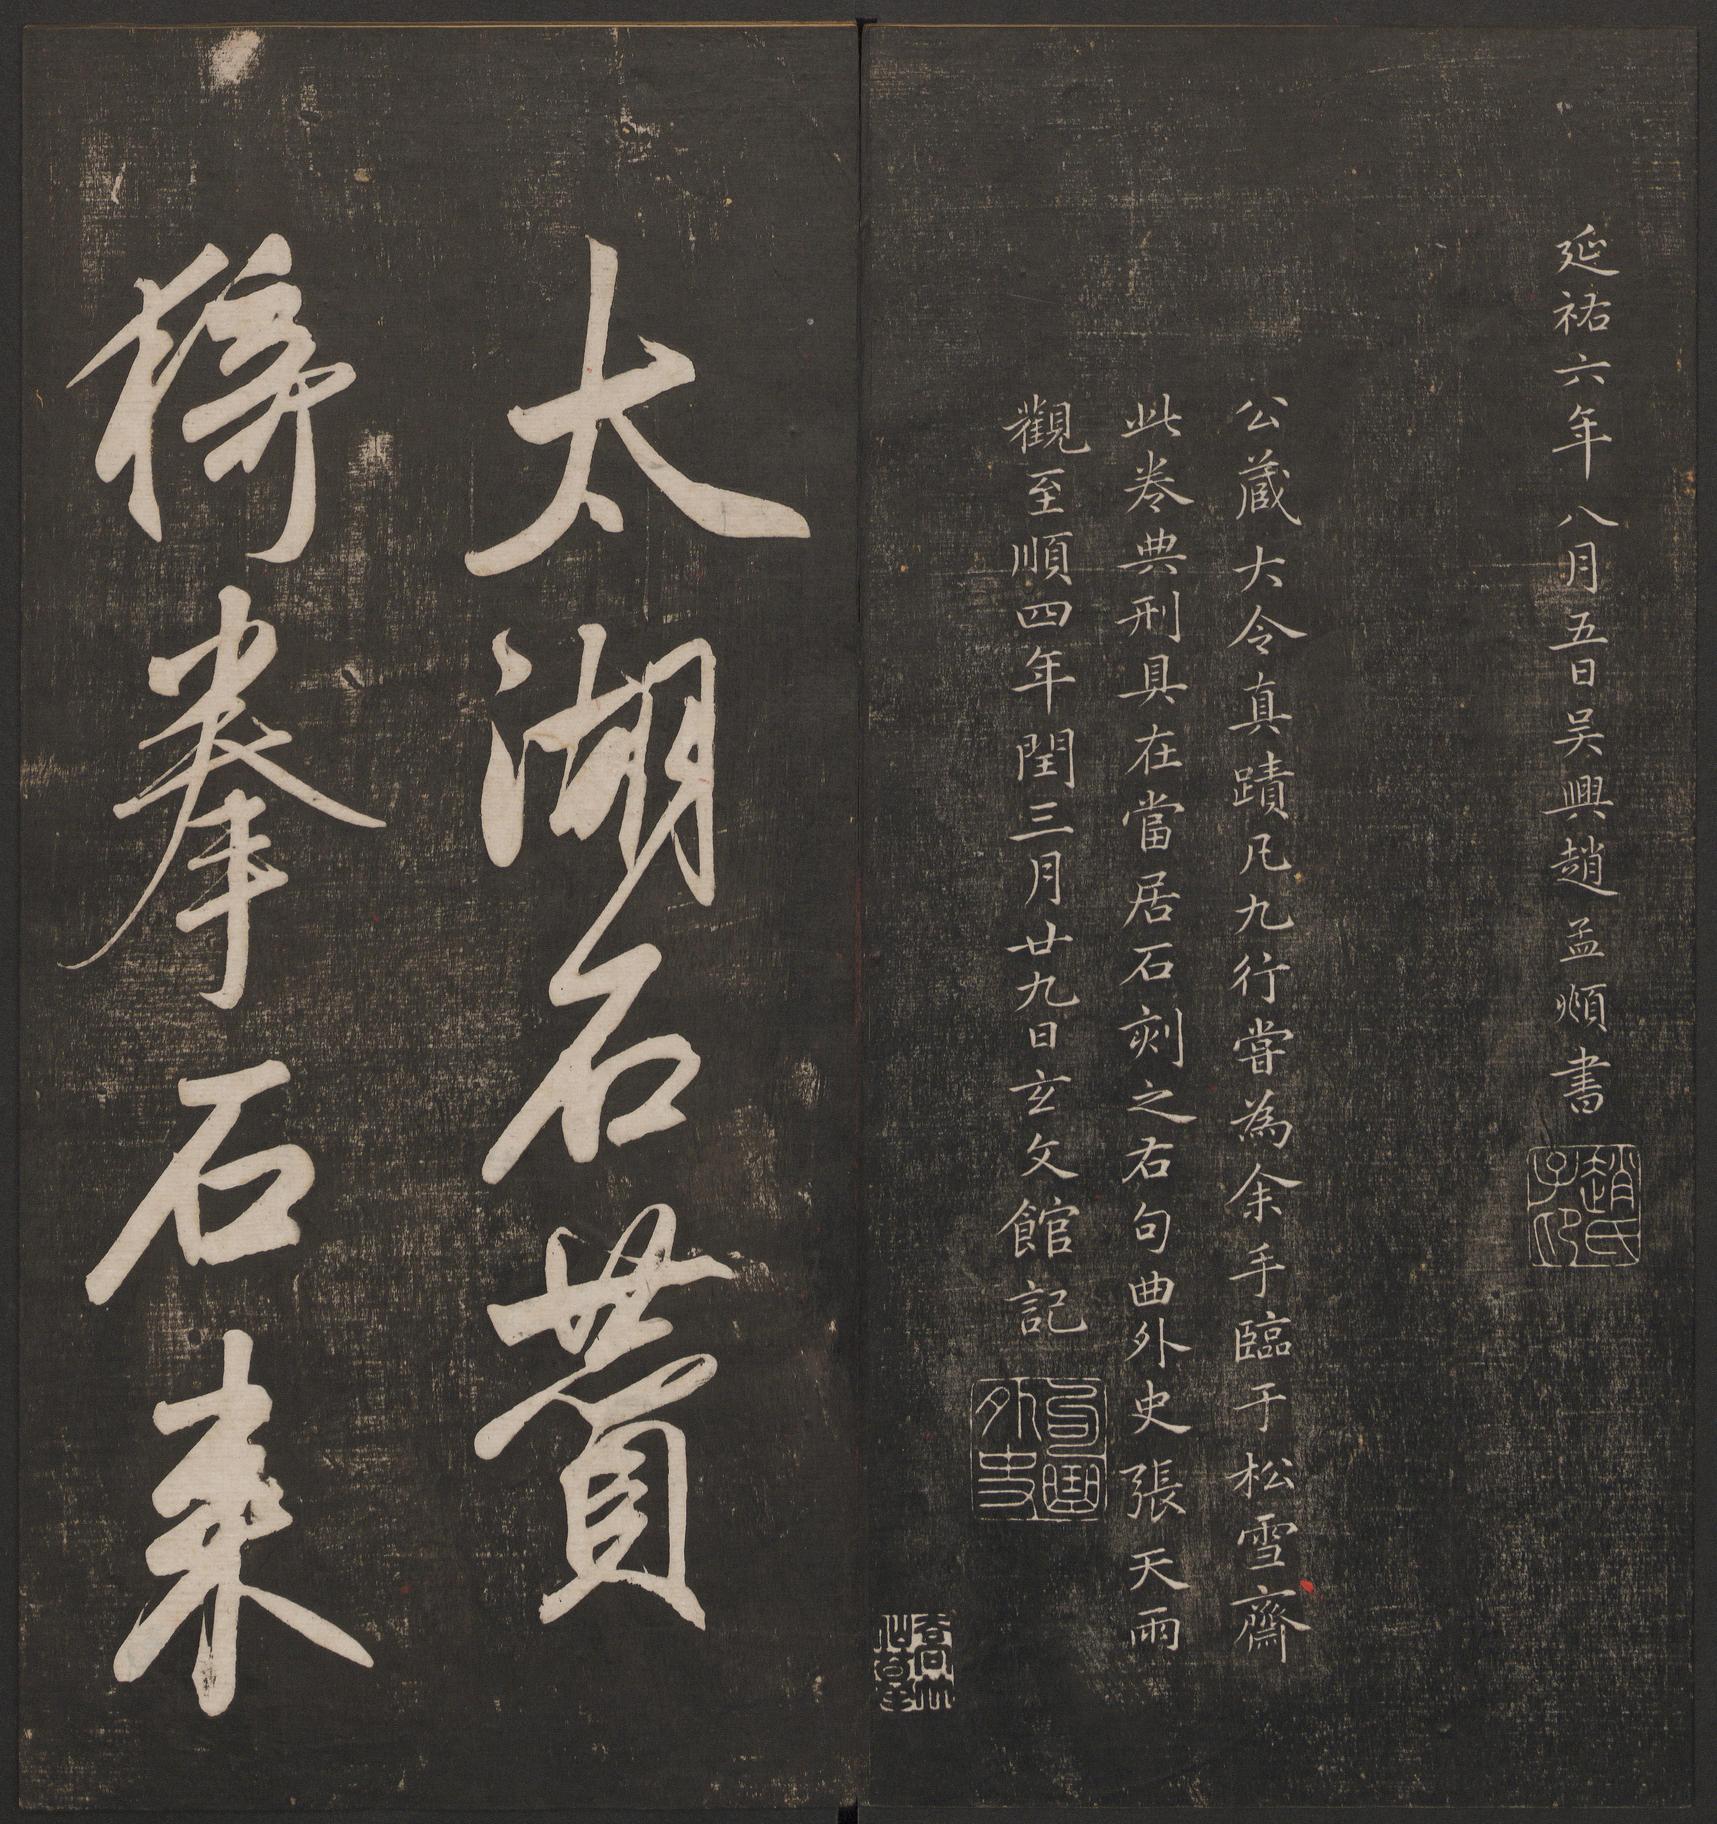 延祐六年八月五日吴興趙孟頫書
趙氏子印
公蔵大令真蹟凡九行嘗為余手臨于松雪齋
此卷典刑具在當居石刻之右句曲外史張天雨
觀至順四年閏三月廿九日玄文館記
句曲外史
太湖石贊
猗拳石来